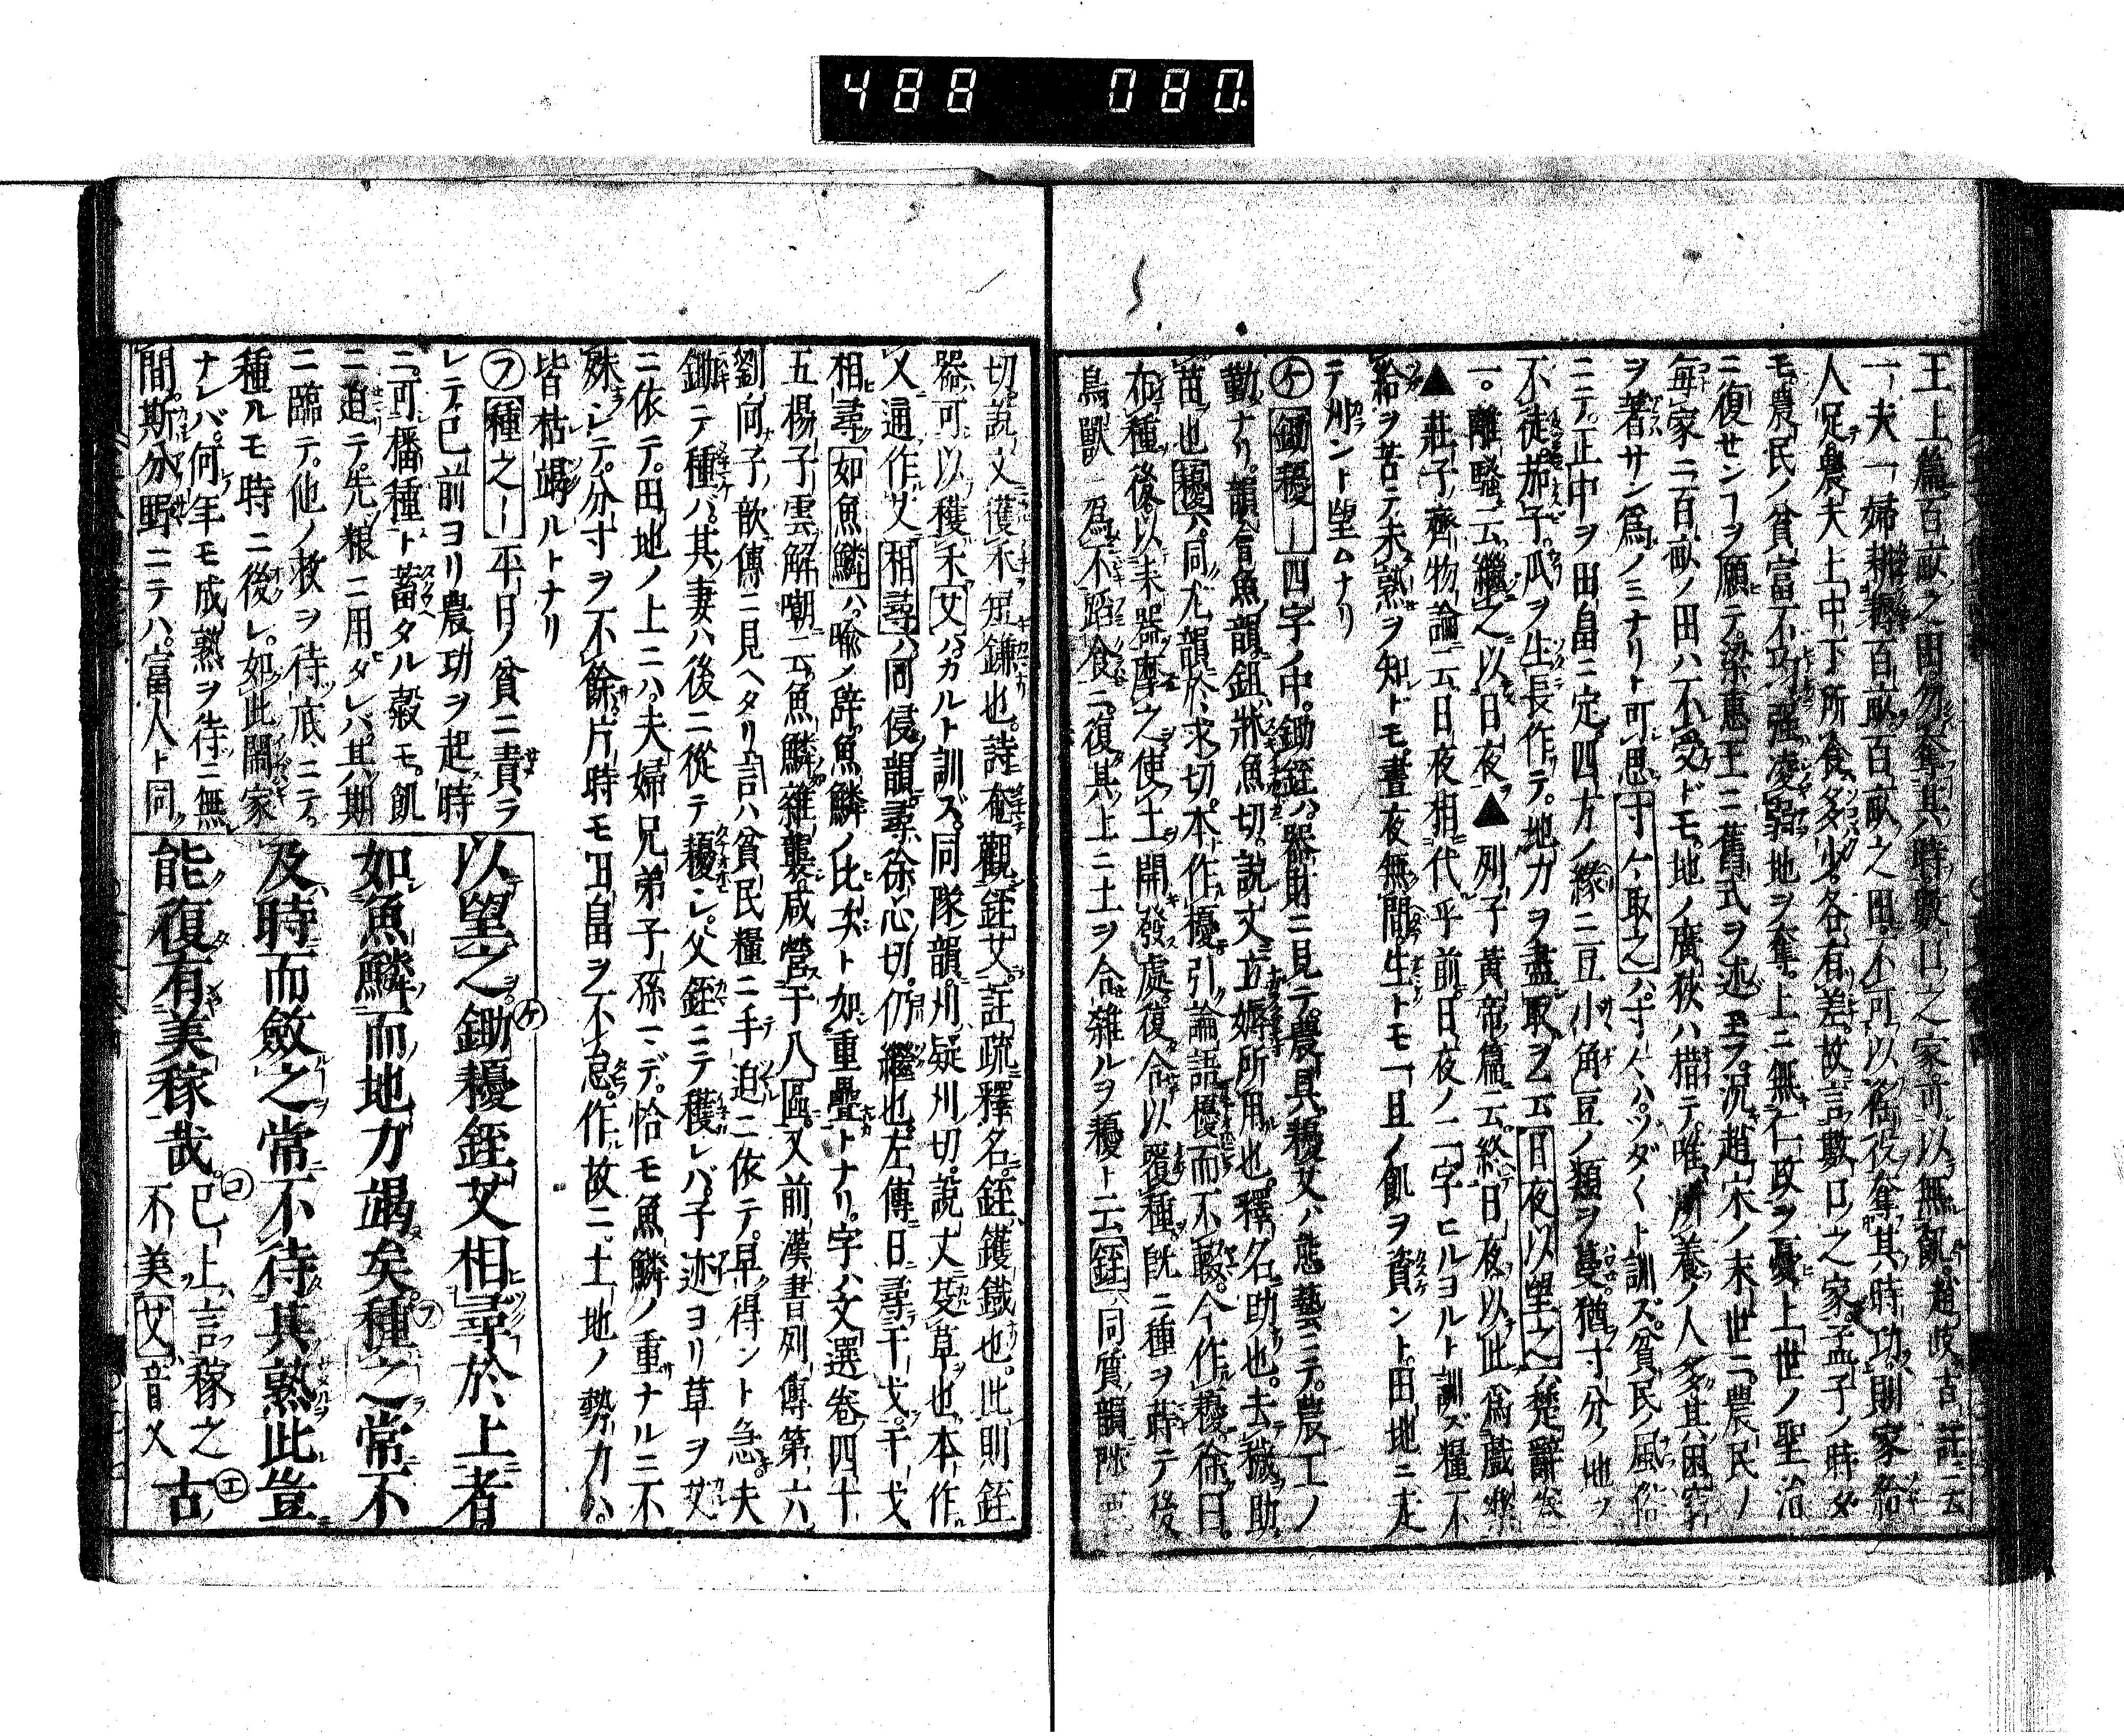 488 080
王上篇百畝之田勿奪其時數口之家可以無飢趙岐古註云
一夫一婦耕耨百畝百畝之田不可以徭役奪其時功則家給
人足農夫上中下所食多少各有差故言數口之家孟子ノ時ダ
モ農民ノ貧富不均强凌弱地ヲ奪上ニ無仁政ヲ憂上世ノ聖治
ニ復センヿヲ願テ梁惠王ニ舊式ヲ述玉フ況趙宋ノ末世ニ農民ノ
毎家ニ百畝ノ田ハ不受ドモ地ノ廣狹ハ措テ唯所養ノ人多其困窮
ヲ著サン爲ノミナリト可思寸々取之ハ寸々ハツダ〱ト訓ズ貧民ノ風俗
ニテ正中ヲ田畠ニ定四方ノ緣ニ豆小角豆ノ類ヲ蔓猶寸分ノ地ヲ
不徒茄子瓜ヲ生長作テ地力ヲ盡取ヲ云日夜以望之ハ楚辭卷
一離騷云繼之以日夜▲列子黃帝篇云終日夜以此爲戲樂
▲莊子齊物論云日夜相代乎前日夜ノ二字ヒルヨルト訓ズ糧不
給ヲ苦テ未熟ヲ知ドモ晝夜無間生トモ一旦ノ飢ヲ資ント田地ニ走
テ刈ント望ムナリ
ケ鋤耰ー四字ノ中鋤銍ハ器財ニ見テ農具耰艾ハ態藝ニテ農工ノ
勤ナリ韻會魚韻鉏牀魚切說文立薅所用也釋名助也去穢助
苗也耰ハ同尤韻於求切本作櫌引論語櫌而不輟今作耰徐曰
布種後以耒器摩之使土開發處復合以覆種旣ニ種ヲ蒔テ後
鳥獸ノ爲不蹈食ニ復其上ニ土ヲ合雜ルヲ耰ト云銍ハ同質韻陟栗
切說文穫禾短鎌也詩奄觀銍艾註疏釋名銍鑊鐵也此則銍
器可以穫禾艾ハカルト訓ズ同隊韻刈疑刈切說文芟草也本作
乂通作艾相尋ハ同侵韻尋徐心切仍繼也左傳日尋干戈干戈
相尋如魚鱗ハ喩ノ辭魚鱗ノ比次ト如重疊トナリ字ハ文選卷四十
五楊子雲解嘲云魚鱗雜襲咸營于八區又前漢書列傳第六
劉向子歆傳ニ見ヘタリ言ハ貧民糧ニ手迫ニ依テ早得ント急夫
鋤ニテ種バ其妻ハ後ニ從テ耰シ父銍ニテ穫レバ子迹ヨリ草ヲ艾
ニ依テ田地ノ上ニハ夫婦兄弟子孫マデ恰モ魚鱗ノ重ナルニ不
殊シテ分寸ヲ不餘片時モ田畠ヲ不怠作故ニ土地ノ勢力ハ
皆枯竭ルトナリ
フ種之ー平日ノ貧ニ責ラ
レテ已前ヨリ農功ヲ起時
ニ可播種ト蓄タル穀モ飢
ニ迫テ先粮ニ用タレバ其期
ニ臨テ他ノ救ヲ待底ニテ
種ルモ時ニ後レ如此鬧家
ナレバ何年モ成熟ヲ待ニ無
間斯分野ニテハ富人ト同
以望之ケ鋤耰銍艾相尋於上者
如魚鱗而地力竭矣フ種之常不
及時而斂之常不待其熟此豈
能復有美稼哉コ已上言稼之
不美艾音乂エ古